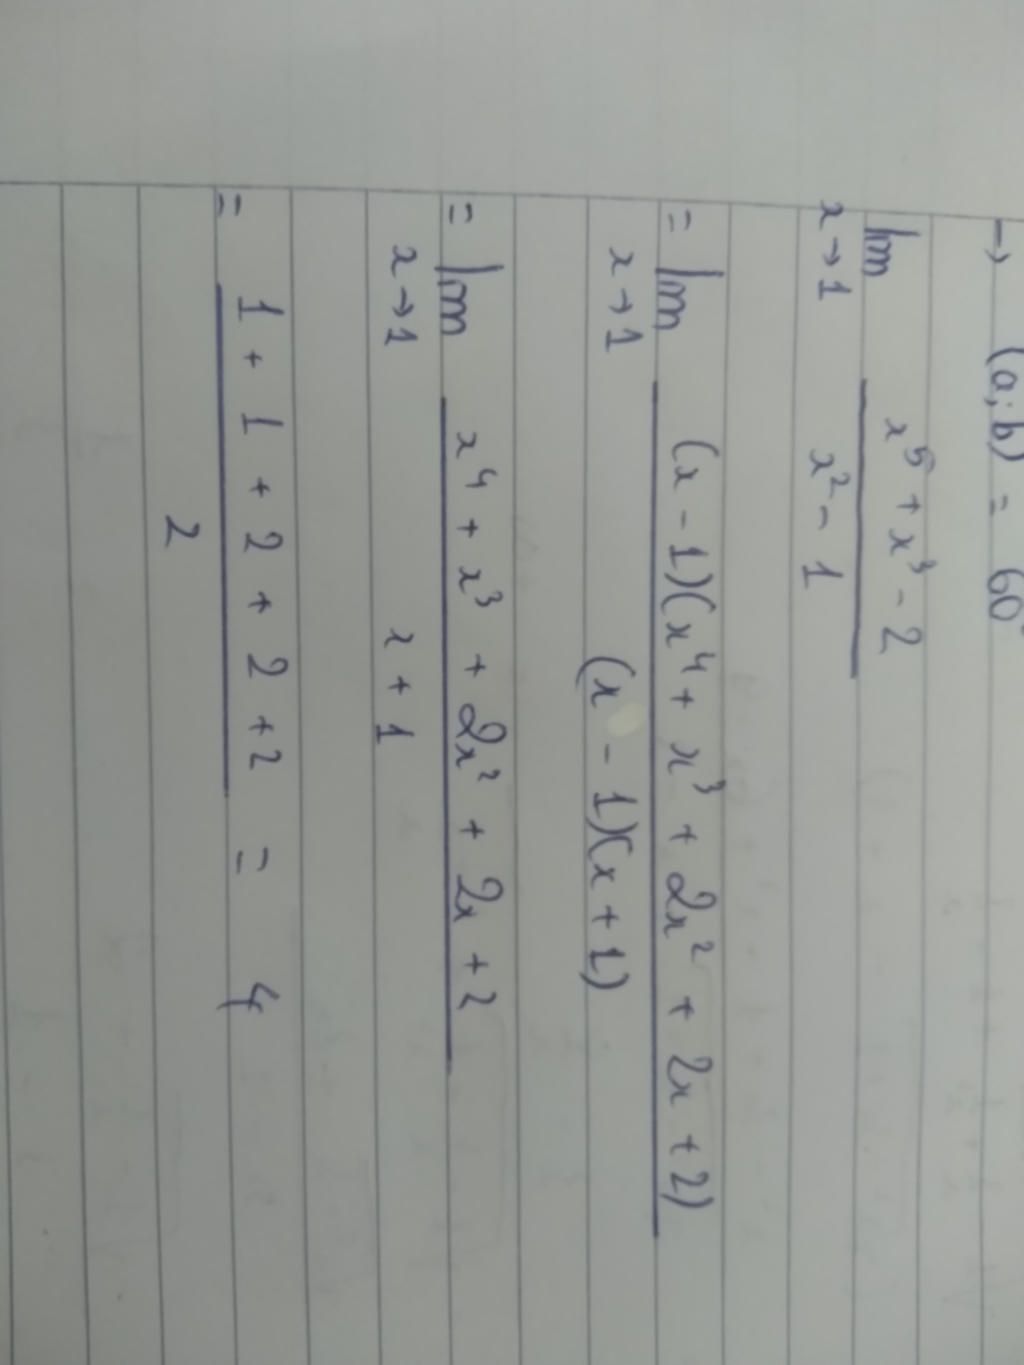 → (a; b) = 60°
lim x→1 (x⁵ + x³ - 2)/(x² - 1)
= lim x→1 ((x - 1)(x⁴ + x³ + 2x² + 2x + 2))/((x - 1)(x + 1))
= lim x→1 (x⁴ + x³ + 2x² + 2x + 2)/(x + 1)
= (1 + 1 + 2 + 2 + 2)/2 = 4